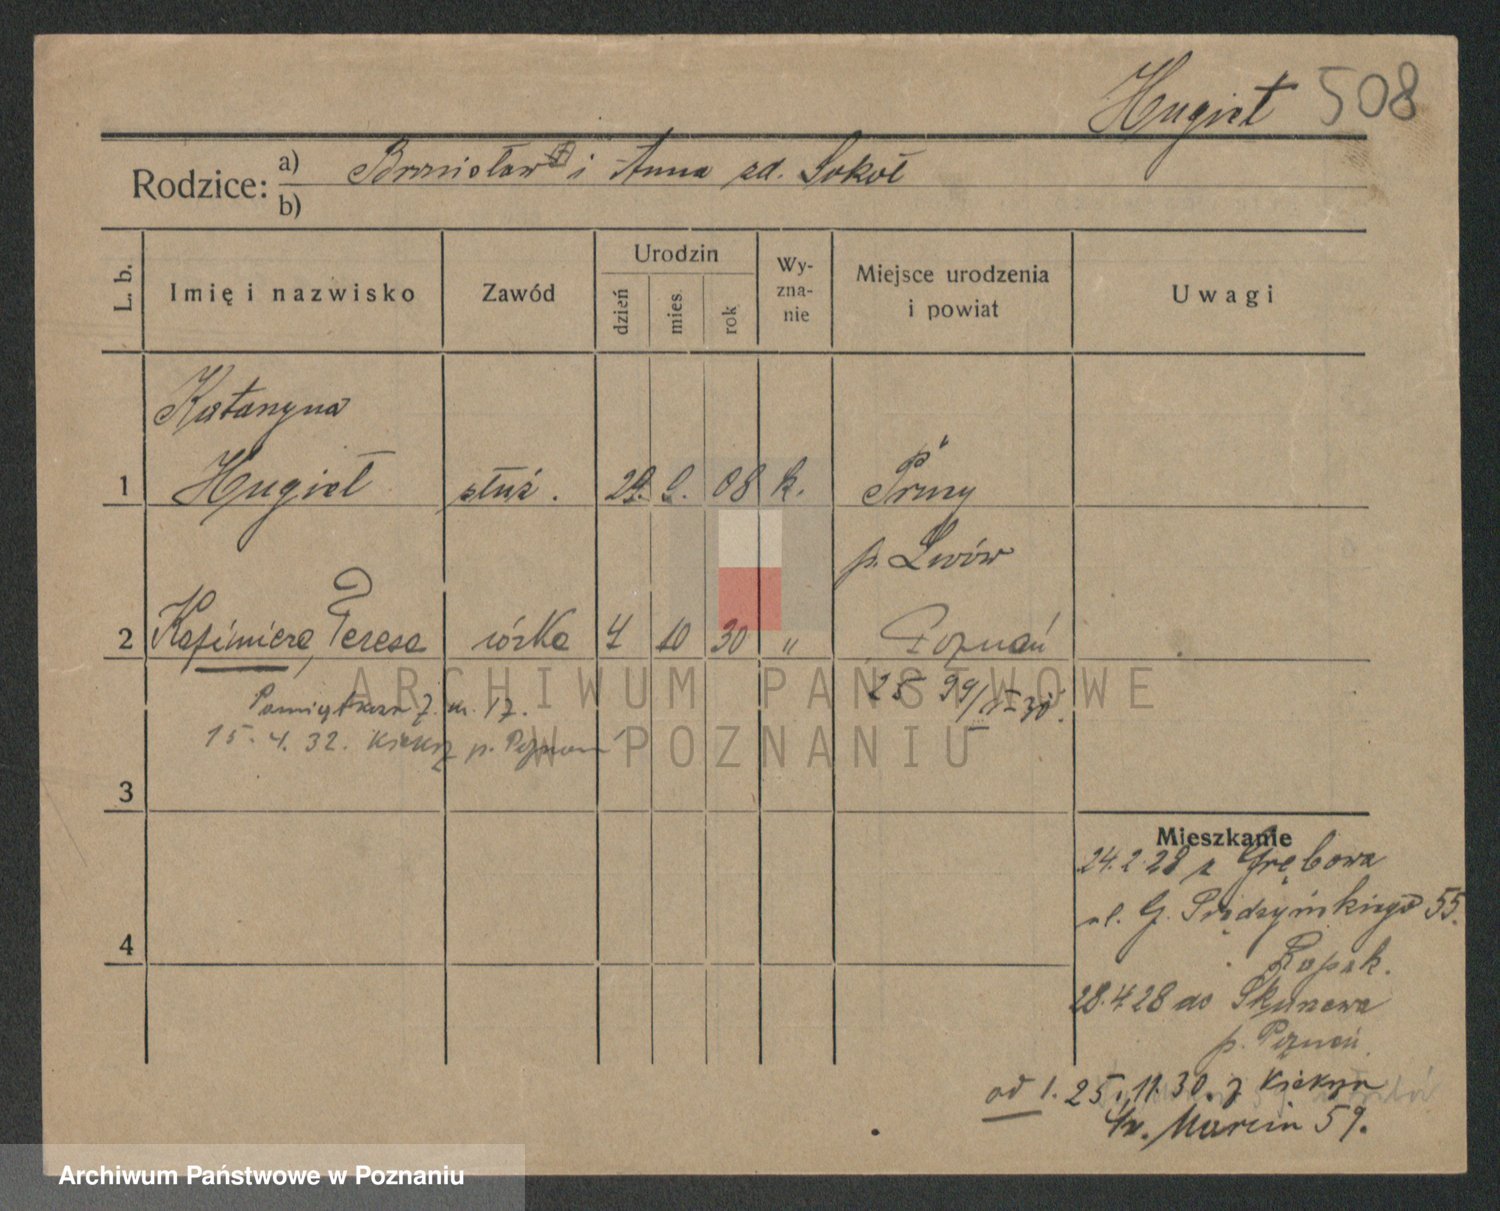 Hugiet 508
Rodzice: a) Bronisław i Anna zd. Sokół
b)
L. b. Imię i nazwisko Zawód Urodzin dzień mies. rok Wy-zna-nie Miejsce urodzenia i powiat Uwagi
Katarzyna
1 Hugiet służ. 29. 9. 08 k. Prusy
p. Lwów
2 Kazimiera, Teresa córka 4 10 30 " Poznań
25 99/V-30.
17.
15. 4. 32. Kiekrz p. Poznań
3
4
Mieszkanie
24.2.28 z Grębowa
ul. G. 55.
28.4.28 do
p. Poznań
od 1. 25.11.30. z Kiekrza
Św. Marcin 59.
ARCHIWUM PAŃSTWOWE
W POZNANIU
Archiwum Państwowe w Poznaniu